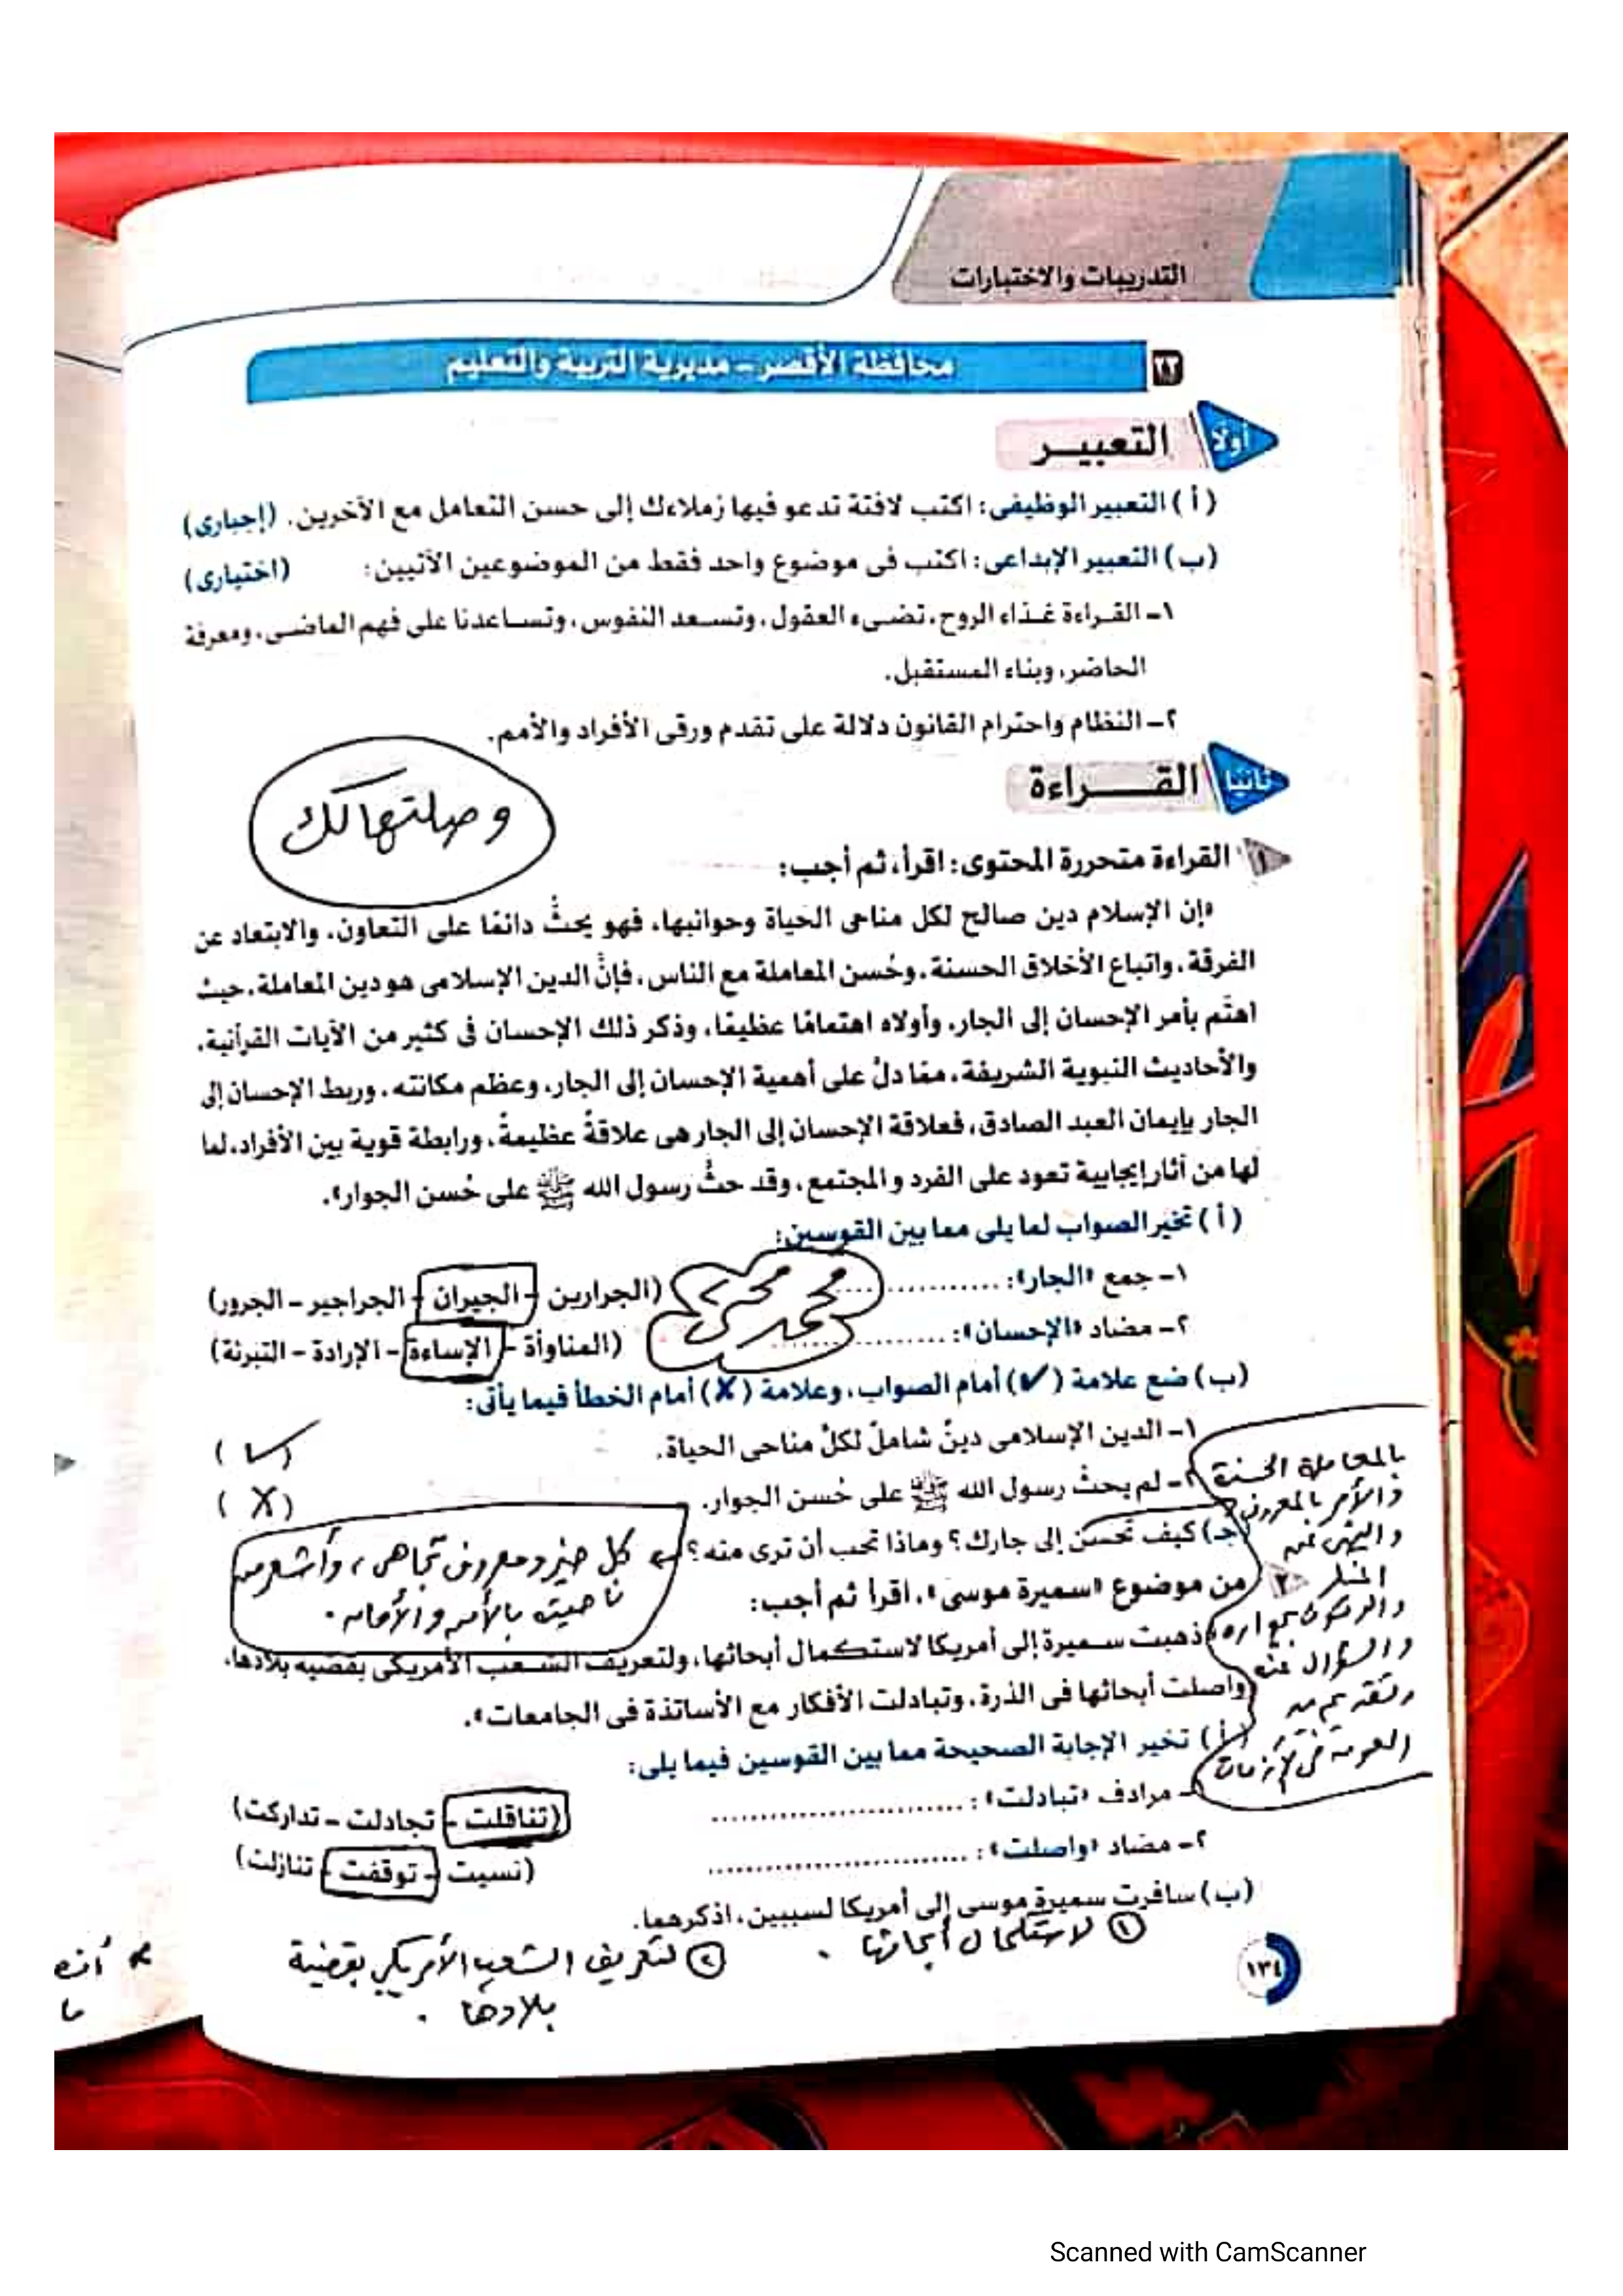 التدريبات والاختبارات
٢٣ محافظة الأقصر - مديرية التربية والتعليم
أولا التعبيـر
(أ) التعبير الوظيفى: اكتب لافتة تدعو فيها زملاءك إلى حسن التعامل مع الآخرين. (إجبارى)
(ب) التعبير الإبداعى: اكتب فى موضوع واحد فقط من الموضوعين الآتيين: (اختيارى)
١- القراءة غذاء الروح، تضىء العقول، وتسعد النفوس، وتساعدنا على فهم الماضى، ومعرفة
الحاضر، وبناء المستقبل.
٢- النظام واحترام القانون دلالة على تقدم ورقى الأفراد والأمم.
ثانيا القـــراءة
وصلتهالك
١ القراءة متحررة المحتوى: اقرأ، ثم أجب:
«إن الإسلام دين صالح لكل مناحى الحياة وجوانبها، فهو يحثُّ دائمًا على التعاون، والابتعاد عن
الفرقة، واتباع الأخلاق الحسنة، وحُسن المعاملة مع الناس، فإنَّ الدين الإسلامى هو دين المعاملة، حيث
اهتَم بأمر الإحسان إلى الجار، وأولاه اهتمامًا عظيمًا، وذكر ذلك الإحسان فى كثير من الآيات القرآنية،
والأحاديث النبوية الشريفة، مما دلَّ على أهمية الإحسان إلى الجار، وعظم مكانته، وربط الإحسان إلى
الجار بإيمان العبد الصادق، فعلاقة الإحسان إلى الجار هى علاقةٌ عظيمةٌ، ورابطة قوية بين الأفراد، لما
لها من آثار إيجابية تعود على الفرد والمجتمع، وقد حثَّ رسول الله ﷺ على حُسن الجوار».
(أ) تخير الصواب لما يلى مما بين القوسين:
١- جمع «الجار»: .............. (الجرارين - الجيران - الجراجير - الجرور)
٢- مضاد «الإحسان»: .............. (المناوأة - الإساءة - الإرادة - التبرئة)
محمد
(ب) ضع علامة (✓) أمام الصواب، وعلامة (✗) أمام الخطأ فيما يأتى:
١- الدين الإسلامى دينٌ شاملٌ لكلِّ مناحى الحياة. (✓)
٢- لم يحثَّ رسول الله ﷺ على حُسن الجوار. (✗)
(جـ) كيف تحسن إلى جارك؟ وماذا تحب أن ترى منه؟
كل خير ومعروف تجاهى، وأشعر من
ناحيته بالأمن والأمان.
بالمعاملة الحسنة
والأمر بالمعروف
والنهى عن
المنكر
والوقوف بجواره
والسؤال عنه
وتقديم يد
العون فى الأزمات
٢ من موضوع «سميرة موسى»، اقرأ ثم أجب:
«ذهبت سميرة إلى أمريكا لاستكمال أبحاثها، ولتعريف الشعب الأمريكى بقضية بلادها،
واصلت أبحاثها فى الذرة، وتبادلت الأفكار مع الأساتذة فى الجامعات».
(أ) تخير الإجابة الصحيحة مما بين القوسين فيما يلى:
١- مرادف «تبادلت»: .............. (تناقلت - تجادلت - تداركت)
٢- مضاد «واصلت»: .............. (نسيت - توقفت - تنازلت)
(ب) سافرت سميرة موسى إلى أمريكا لسببين، اذكرهما.
① لاستكمال أبحاثها.
② لتعريف الشعب الأمريكى بقضية
بلادها.
١٣٤
Scanned with CamScanner